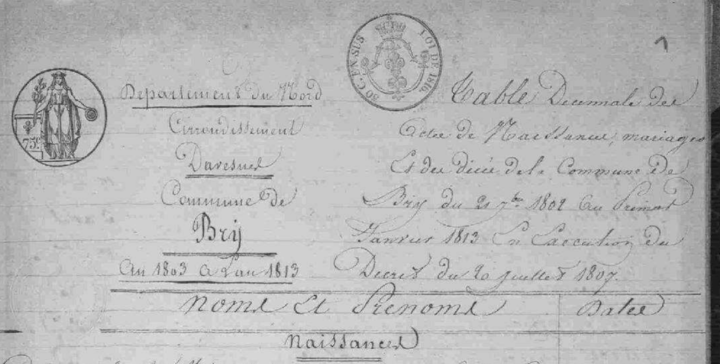 Departement du Nord
Arrondissement
Davesnes
Commune de
Bry
An 1803 a l'an 1813
50 C. EN SUS LOI DE 1816
75
1
Table Decennale des
Actes de Naissances, mariages
Et des décé de la Commune de
Bry du 21 7bre 1802 au Premier
Janvier 1813 En Execution du
Decret du 20 juillet 1807.
Noms Et Prenoms Dates
Naissances